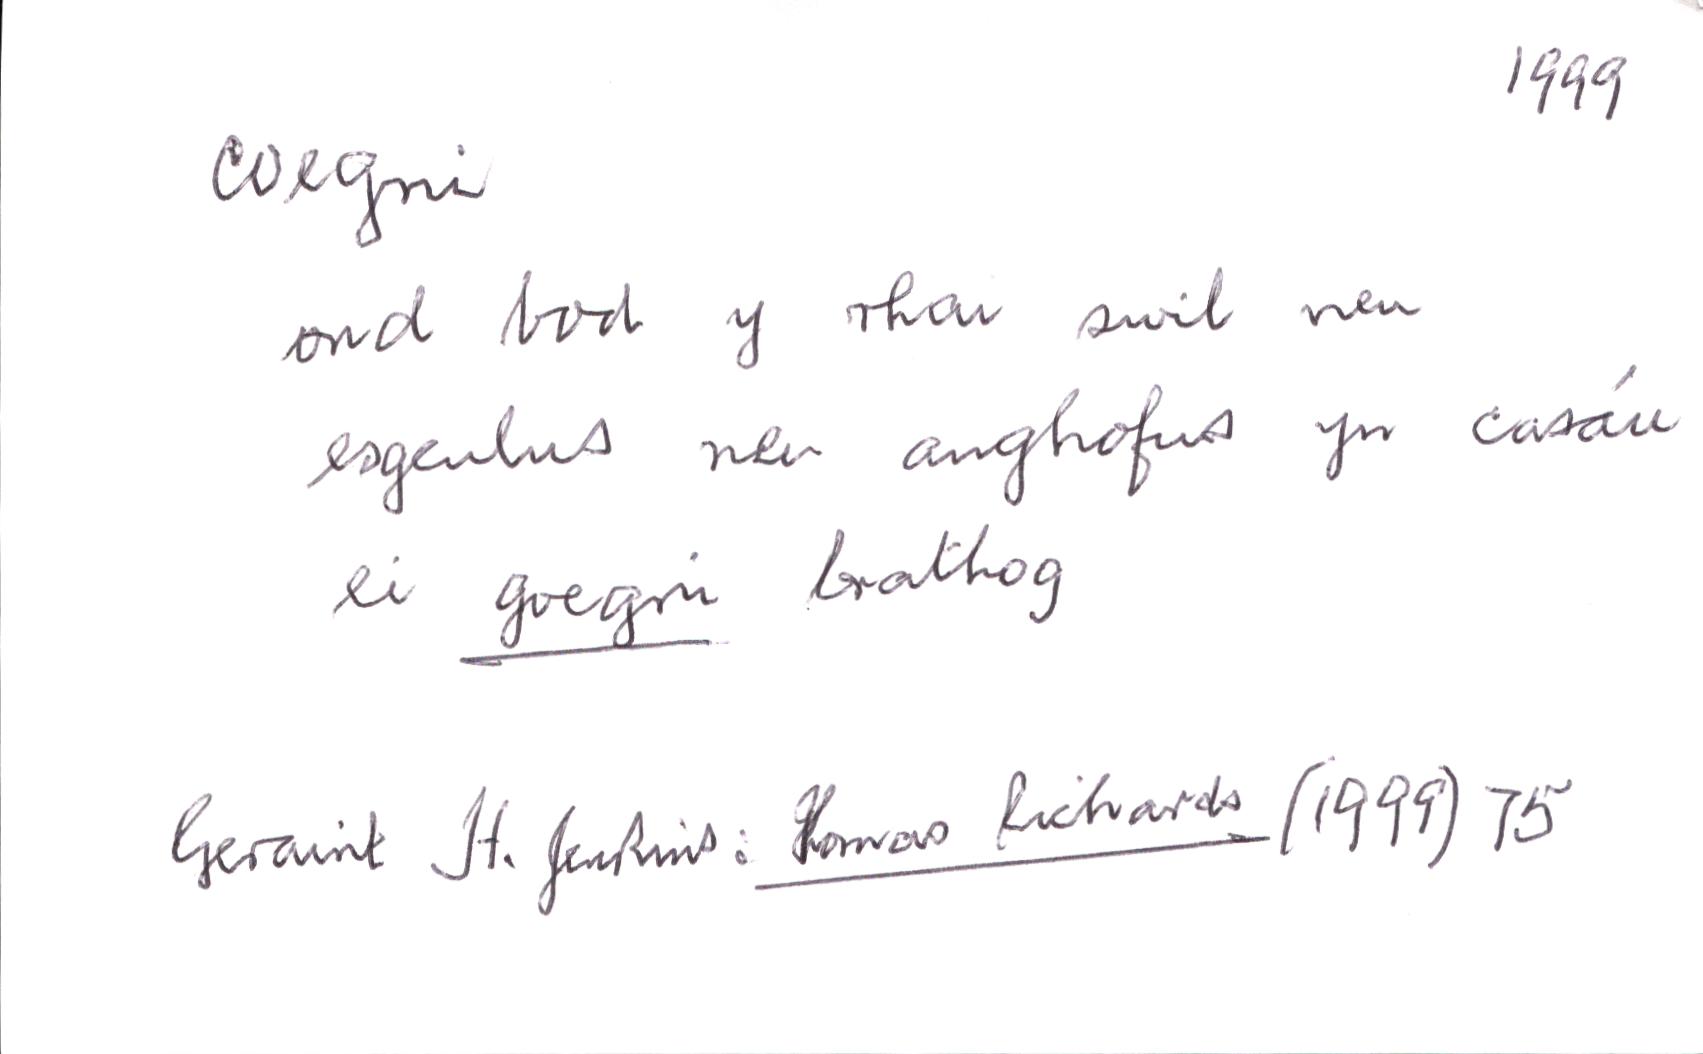 1999
coegni
ond bod y rhai swil neu
esgeulus neu anghofus yn casáu
ei goegni brathog
Geraint H. Jenkins: Thomas Richards (1999) 75